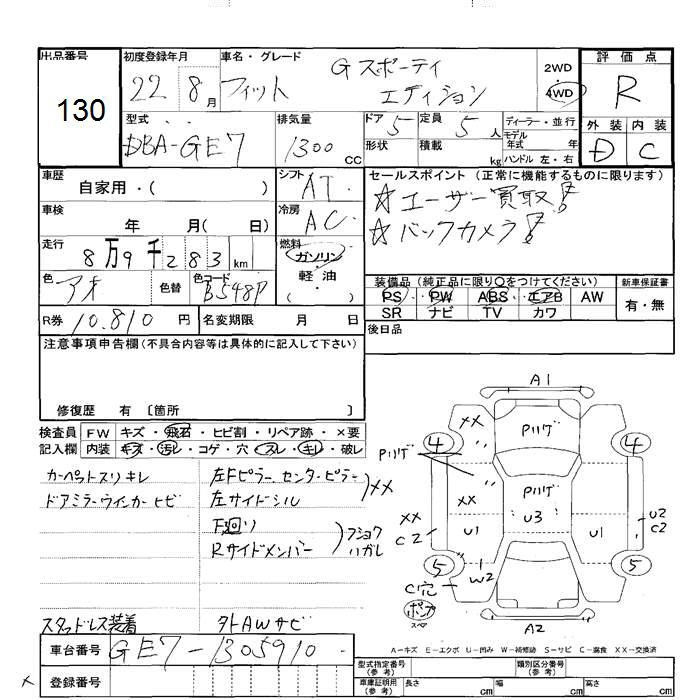 出品番号
130
初度登録年月
22 8月
車名・グレード
フィット Gスポーティ
エディション
2WD
4WD
評価点
R
外装 内装
D C
型式
DBA-GE7
排気量
1300 CC
ドア 5
定員 5 人
形状
積載 kg
ディーラー・並行
モデル
年式 年
ハンドル 左・右
車歴
自家用・( )
シフト AT
車検
年 月( 日)
冷房 AC
走行
8万9千283 km
燃料
ガソリン
軽・油
( )
色 アオ
色替
色コード B548P
R券 10,810 円
名変期限 月 日
セールスポイント (正常に機能するものに限ります)
☆ユーザー買取!
☆バックカメラ!
装備品(純正品に限り○をつけてください)
PS・PW ABS・エアB AW
SR ナビ TV カワ
新車保証書
有・無
後日品
注意事項申告欄(不具合内容等は具体的に記入して下さい)
修復歴 有 〔箇所 〕
検査員
記入欄
FW キズ・飛石・ヒビ割・リペア跡・×要
内装 キズ・汚レ・コゲ・穴・スレ・キレ・破レ
カーペットスリキレ
ドアミラーウインカーヒビ
左Fピラー、センターピラー
左サイドシル
XX
F廻り
Rサイドメンバー
フショク
ハガレ
スタッドレス装着
外AWサビ
A1
XX
Pハゲ
4
4
Pハゲ
Pハゲ
XX
XX
C2
U1
U3
U1
U2
C2
5
1
W2
5
C穴
A2
A-キズ E-エクボ U-凹み W-補修跡 S-サビ C-腐食 XX-交換済
車台番号 GE7-1305910
登録番号
型式指定番号
(参考)
類別区分番号
(参考)
車庫証明用
(参考)
長さ cm
幅 cm
高さ cm